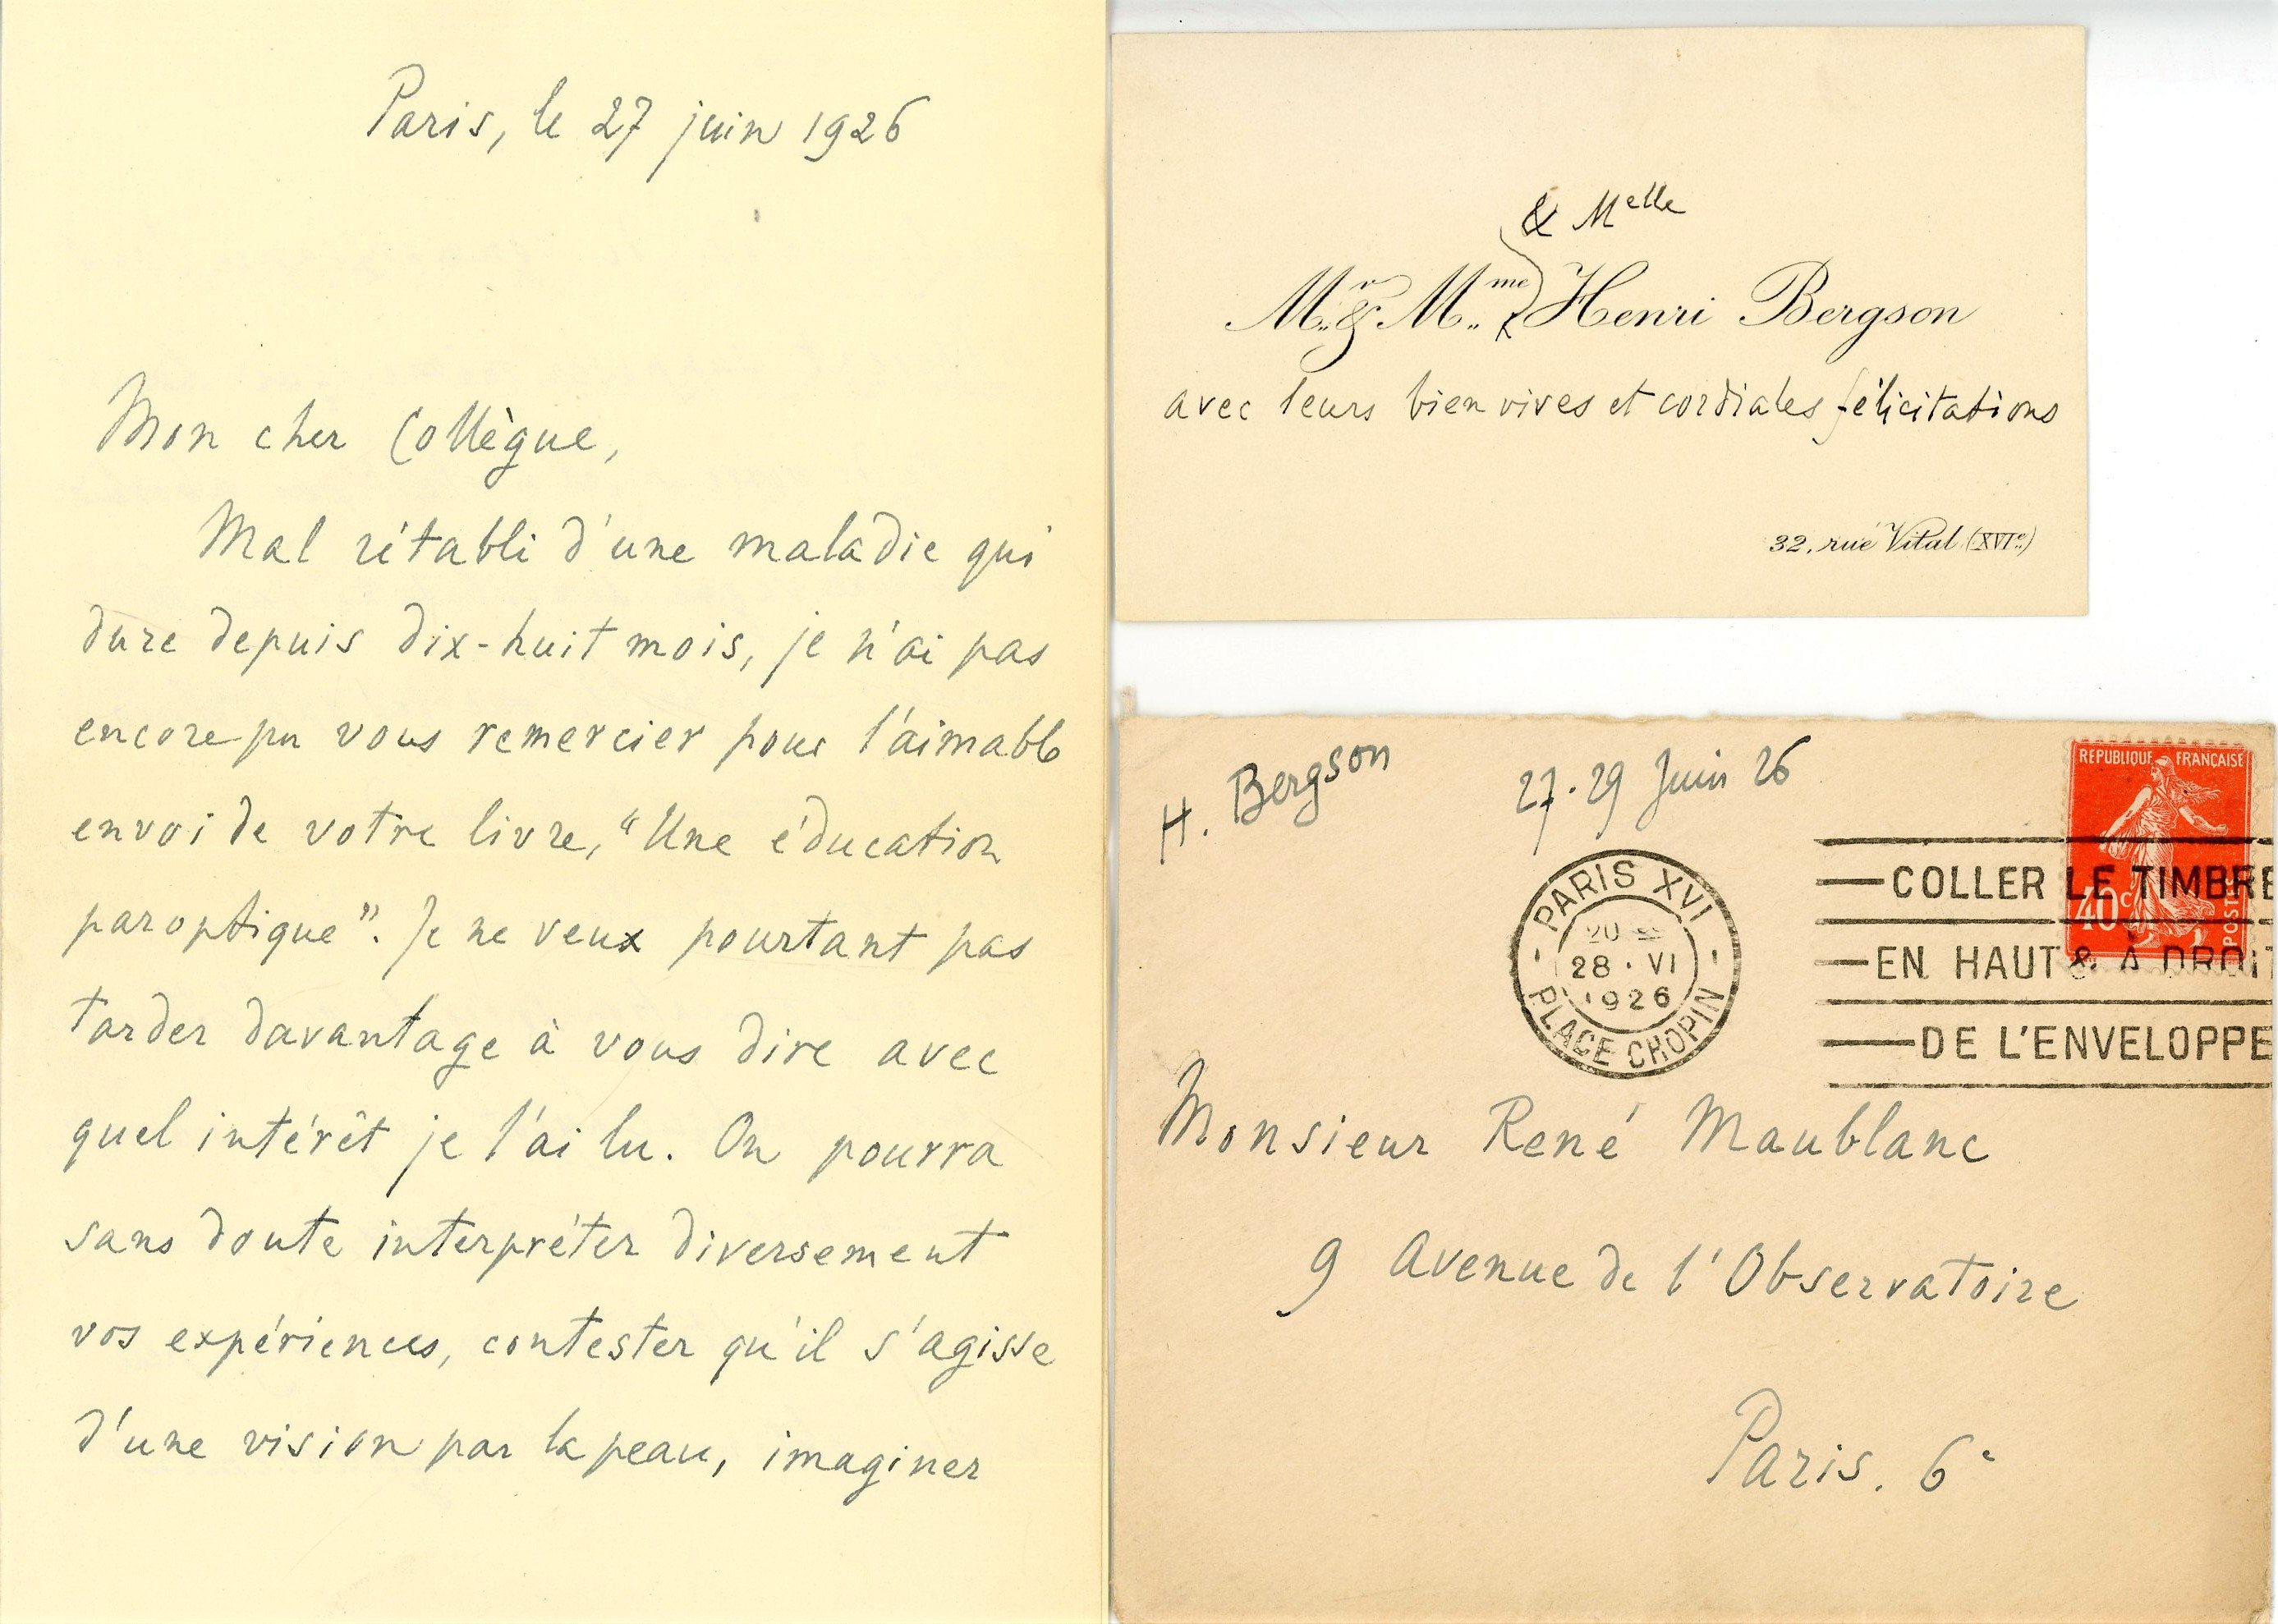 Paris, le 27 juin 1926
Mon cher Collègue,
Mal rétabli d'une maladie qui
dure depuis dix-huit mois, je n'ai pas
encore pu vous remercier pour l'aimable
envoi de votre livre, "Une éducation
paroptique". Je ne veux pourtant pas
tarder davantage à vous dire avec
quel intérêt je l'ai lu. On pourra
sans doute interpréter diversement
vos expériences, contester qu'il s'agisse
d'une vision par la peau, imaginer
& Melle
Mr. & Mme. Henri Bergson
avec leurs bien vives et cordiales félicitations
32, rue Vital (XVIe.)
H. Bergson
27.29 Juin 26
REPUBLIQUE FRANÇAISE
40c
POSTES
PARIS XVI
20
28 · VI
1926
PLACE CHOPIN
COLLER LE TIMBRE
EN HAUT & À DROIT
DE L'ENVELOPPE
Monsieur René Maublanc
9 Avenue de l'Observatoire
Paris. 6e